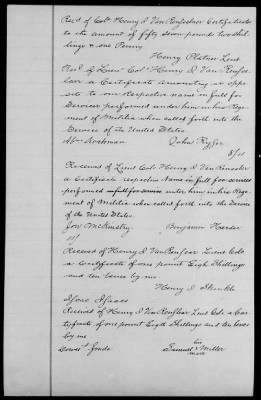 Recd of Colo Henry I Van Rensselaer Certificates
to the amount of fifty seven pounds two shil-
lings & one Penny
Henry Platner Lieut
Recd of Lieut Colo Henry I Van Renssel
laer a Certificate amounting as oppo
site to our Respective names in full for
Services performed under him in his Regi
ment of Militia when called forth into the
Service of the United States.
John Ryfer
Received of Lieut Col. Henry I Van Rensselaer
a Certificate respective Name in full for services
performed in full for service under him in his Regi
ment of Militia when called forth into the Service
of the United States.
Jon McKinstry
Benjamin Harder
Received of Henry I Van Renslaer Lieut Colo
a Certificate of one pound Eight Shillings
and ten pence by me
Henry I
Isaac
Received of Henry I Van Renslaer Lieut Colo a Cer
tificate of one pound Eight Shillings and ten pence
by me
Samuel Miller
mark